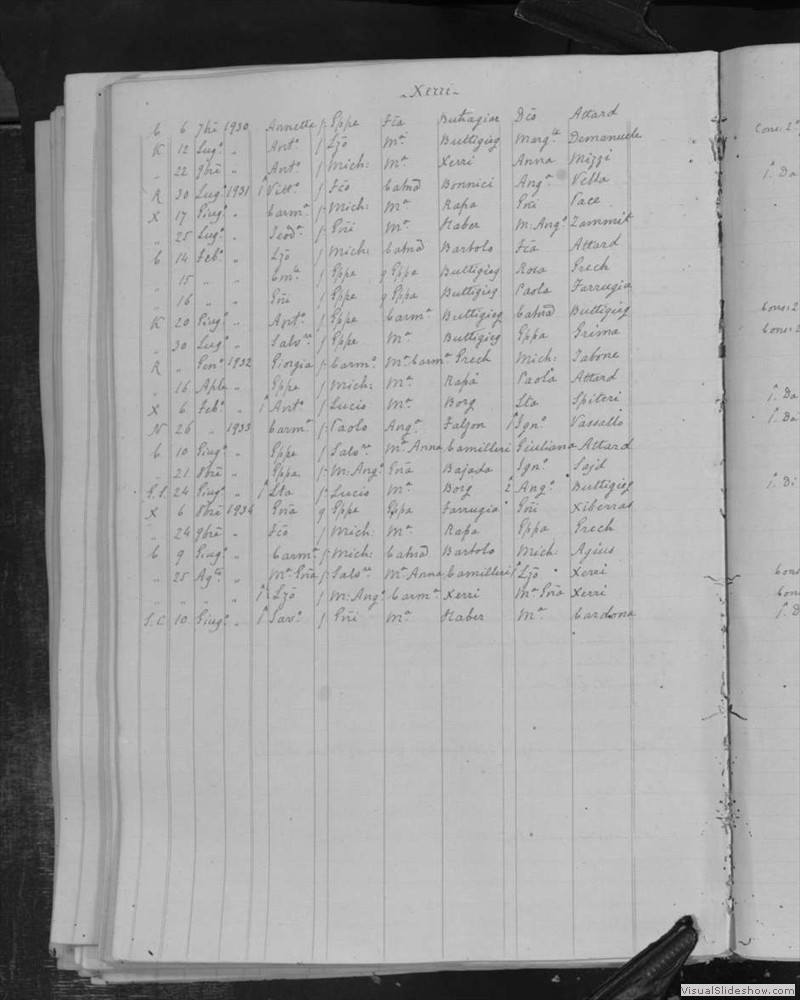 Xerri
C 6 7bre 1930 Annetta f Gppe Fca Buhagiar Dco Attard
K 12 Lug° „ Ant° f Lzo Ma Buttigieg Margta Demanuele
„ 22 9bre „ Ant° f Mich: Ma Xerri Anna Mizzi
R 30 Lug° 1931 1 Vitt° f Fco Catna Bonnici Anga Vella
X 17 Giug° „ Carma f Mich: Ma Rapa Gni Pace
„ 25 Lug° „ f Gni Ma Haber M: Anga Zammit
C 14 Feb° „ Lzo f Mich: Catna Bartolo Fca Attard
„ 15 „ „ f Gppe q Gppa Buttigieg Rosa Grech
„ 16 „ „ Gni f Gppe q Gppa Buttigieg Paola Farrugia
K 20 Giug° „ Ant° f Gppe Carma Buttigieg Catna Buttigieg
„ 30 Lug° „ Salvre f Gppe Ma Buttigieg Gppa Grima
R „ Gen° 1932 Giorgia f Carm° Ma Carma Grech Mich: Tabone
„ 16 Aple „ Gppe f Mich: Ma Rapa Paola Attard
X 6 Feb° „ 1 Ant° f Lucio Ma Borg Lta Spiteri
N 26 „ 1933 Carm° f Paolo Anga Falzon 1 Ign° Vassallo
C 10 Giug° „ Gppe f Salvre Ma Anna Camilleri Giuliana Attard
„ 21 8bre „ Gppa f M: Ang° Gna Bajada Ign° Sajd
G.L. 24 Giug° „ 1 Lta f Lucio Ma Borg 2 Ang° Buttigieg
X 6 8bre 1934 Gna q Gppe Gppa Farrugia Gni Xiberras
„ 24 9bre „ Fco f Mich: Ma Rapa Gppa Grech
C 9 Giug° „ Carma f Mich: Catna Bartolo Mich: Agius
„ 25 Ag° „ Ma Gna f Salvre Ma Anna Camilleri 1 Lzo Xerri
„ „ „ „ 1 Lzo f M: Ang° Carma Xerri Ma Gna Xerri
S.C 10 Giug° „ 1 Sav° f Gni Ma Haber Ma Cardona
Cons: 2°
1. Da
Cons: 2
Cons: 2
1. Da
1. Da
1. Di
Cons
Cons
1. D
VisualSlideshow.com